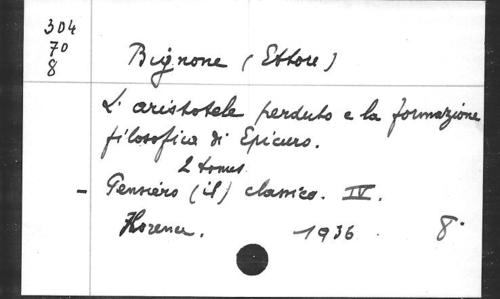 304
70
8
Bignone (Ettore)
L'aristotele perduto e la formazione
filosofica di Epicuro.
2 tomes
- Pensiero (il) classico. IV.
Florence. 1936 8°